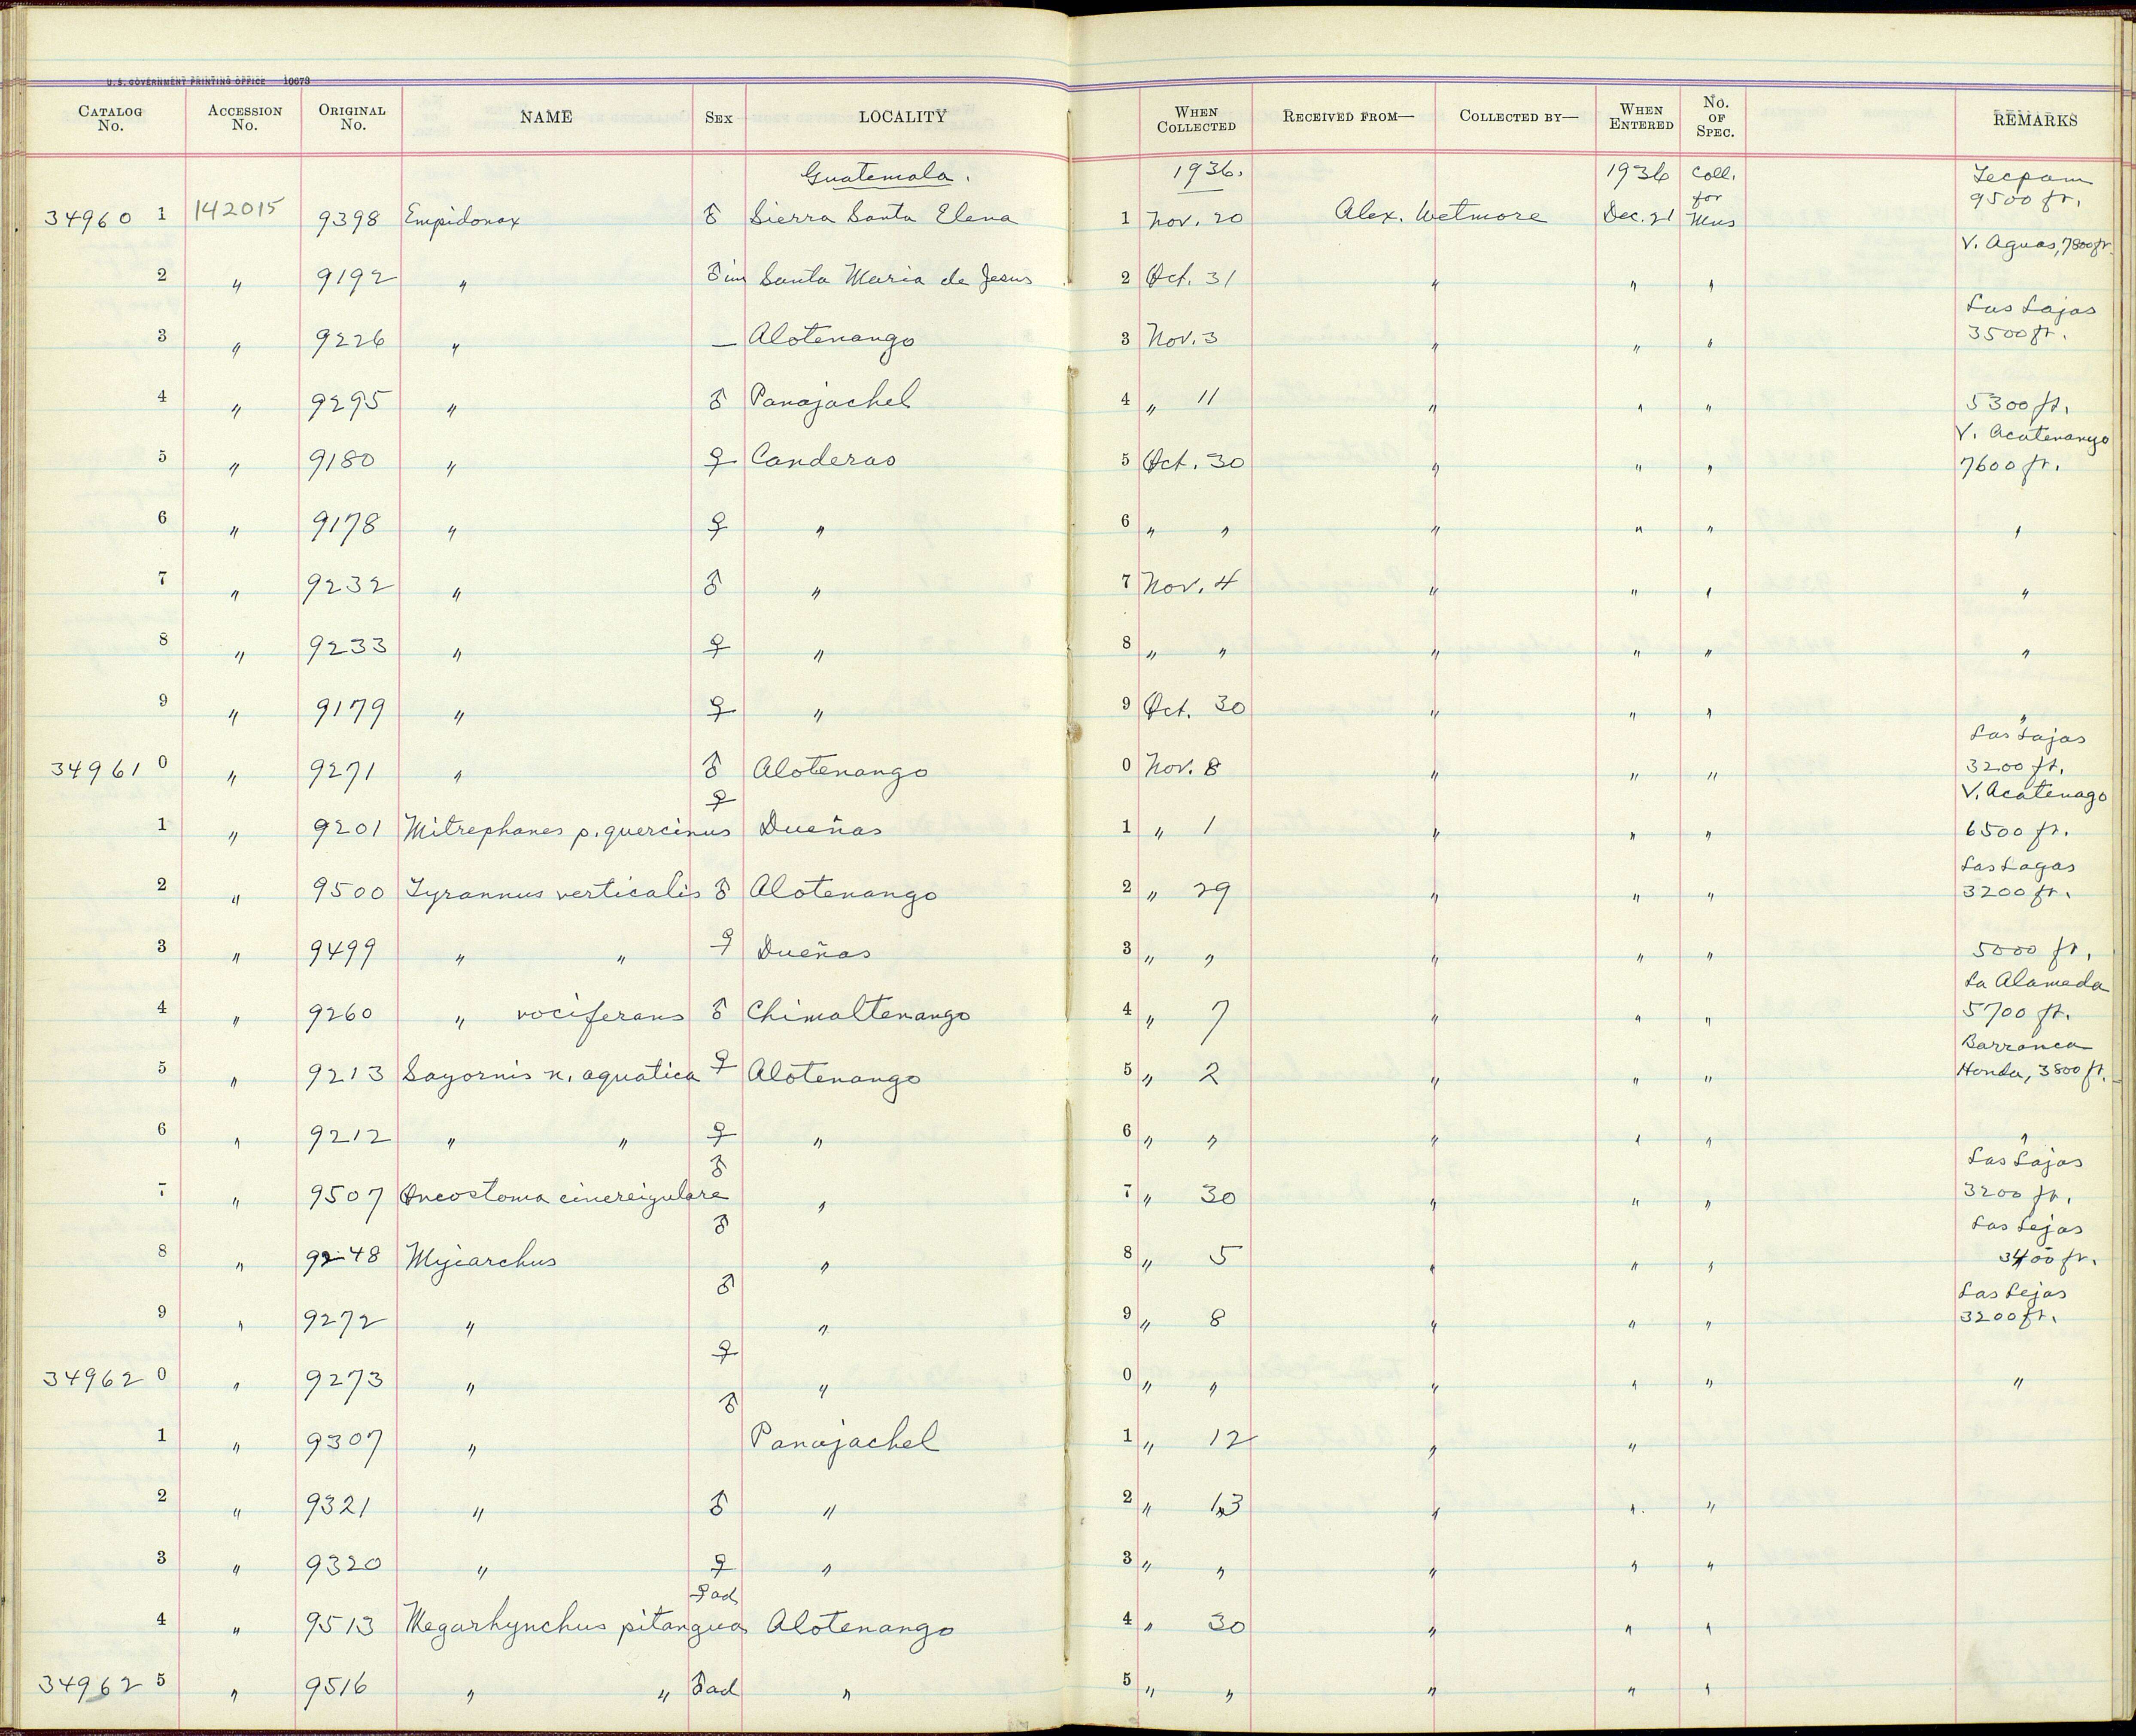 U. S. GOVERNMENT PRINTING OFFICE 10673
CATALOG No. ACCESSION No. ORIGINAL No. NAME SEX LOCALITY WHEN COLLECTED RECEIVED FROM— COLLECTED BY— WHEN ENTERED No. OF SPEC. REMARKS
Guatemala. 1936. 1936 Coll. for Tecpam
34960 1 142015 9398 Empidonax ♂ Sierra Santa Elena 1 Nov. 20 Alex. Wetmore Dec. 21 Mus 9500 ft.
V. Aguas, 7800 ft.
2 " 9192 " ♂ im Santa Maria de Jesus 2 Oct. 31 " " "
Las Lajas
3 " 9226 " — Alotenango 3 Nov. 3 " " " 3500 ft.
4 " 9295 " ♂ Panajachel 4 " 11 " " " 5300 ft.
V. Acatenango
5 " 9180 " ♀ Canderas 5 Oct. 30 " " " 7600 ft.
6 " 9178 " ♀ " 6 " " " " " "
7 " 9232 " ♂ " 7 Nov. 4 " " " "
8 " 9233 " ♀ " 8 " " " " " "
9 " 9179 " ♀ " 9 Oct. 30 " " " "
Las Lajas
34961 0 " 9271 " ♂ Alotenango 0 Nov. 8 " " " 3200 ft.
V. Acatenago
1 " 9201 Mitrephanes p. quercinus ♀ Dueñas 1 " 1 " " " 6500 ft.
Las Lagas
2 " 9500 Tyrannus verticalis ♂ Alotenango 2 " 29 " " " 3200 ft.
3 " 9499 " " ♀ Dueñas 3 " " " " " 5000 ft.
La Alameda
4 " 9260 " vociferans ♂ Chimaltenango 4 " 7 " " " 5700 ft.
Barranca
5 " 9213 Sayornis n. aquatica ♀ Alotenango 5 " 2 " " " Honda, 3800 ft.
6 " 9212 " " ♀ " 6 " " " " " "
Las Lajas
7 " 9507 Oncostoma cinereigulare ♂ " 7 " 30 " " " 3200 ft.
Las Lejas
8 " 9248 Myiarchus ♂ " 8 " 5 " " " 3400 ft.
Las Lejas
9 " 9272 " ♂ " 9 " 8 " " " 3200 ft.
34962 0 " 9273 " ♀ " 0 " " " " " "
1 " 9307 " ♂ Panajachel 1 " 12 " "
2 " 9321 " ♂ " 2 " 13 " " "
3 " 9320 " ♀ " 3 " " " " "
4 " 9513 Megarhynchus pitangua ♀ ad Alotenango 4 " 30 " " "
34962 5 " 9516 " " ♂ ad " 5 " " " " "